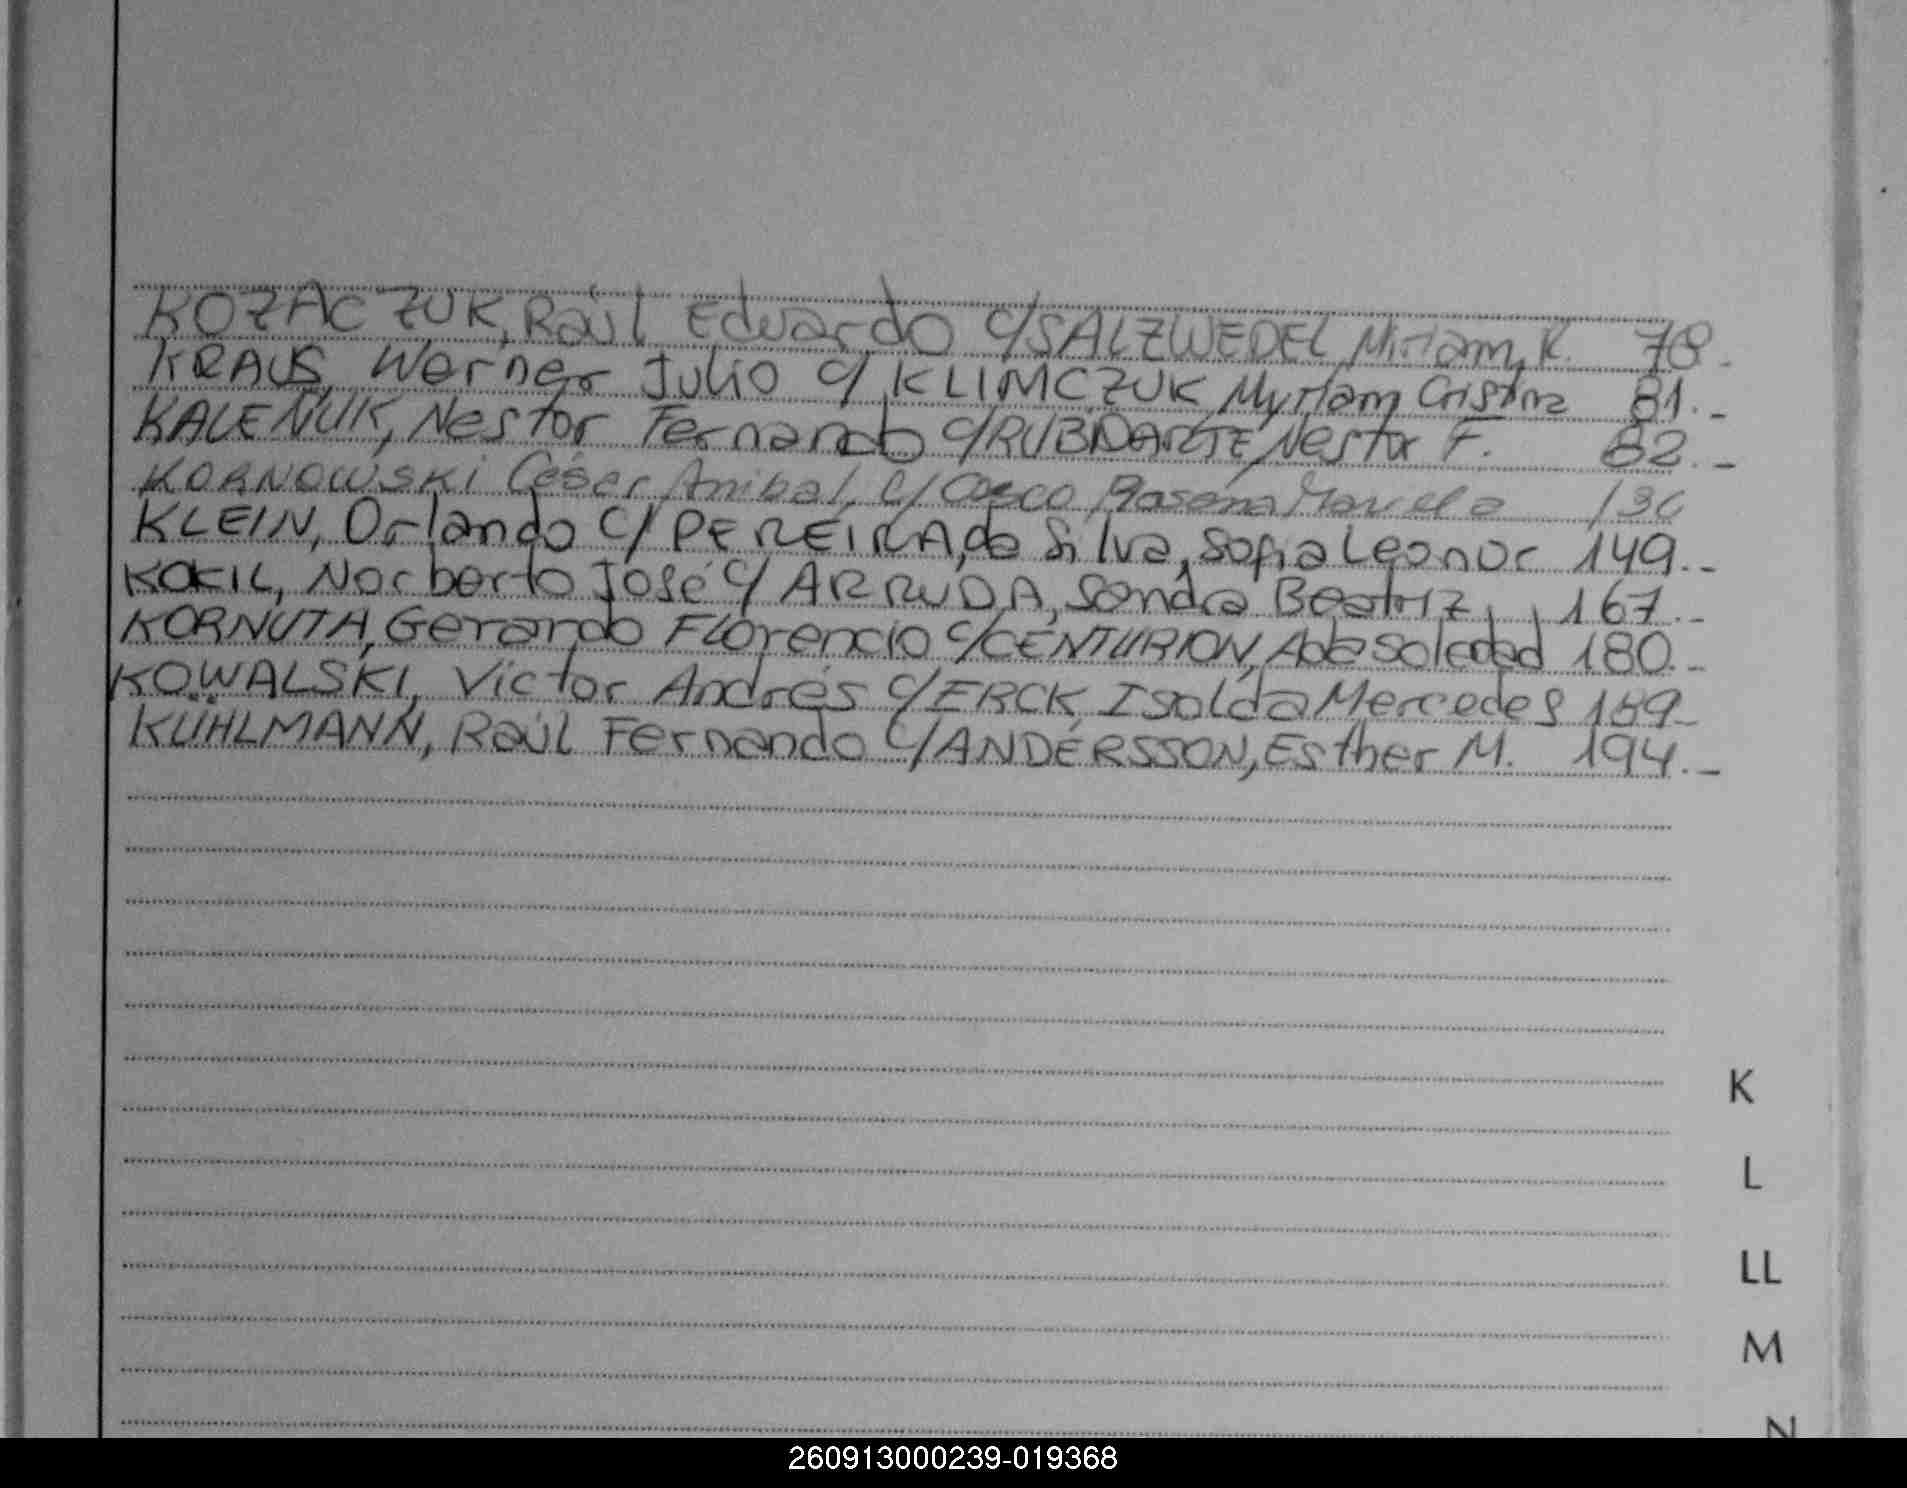 KOZACZUK, Raúl Eduardo c/SALZWEDEL, Miriam, R. 78.
KRAUS, Werner Julio c/ KLIMCZUK, Myriam Cristina 81.-
KALEÑUK, Nestor Fernando c/RUBIDARTE, Nestor F. 82.-
KORNOWSKI César Anibal, c/ Marcela
KLEIN, Orlando c/ PEREIRA, da Silva, Sofia Leonor 149.-
KOKIL, Norberto José c/ ARRUDA, Sandra Beatriz, 167.-
KORNUTA, Gerardo Florencio c/CENTURION, Ada Soledad 180.-
KOWALSKI, Victor Andrés c/ERCK, Isolda Mercedes 189-
KÜHLMANN, Raúl Fernando c/ANDERSSON, Esther M. 194.-
K
L
LL
M
N
260913000239-019368